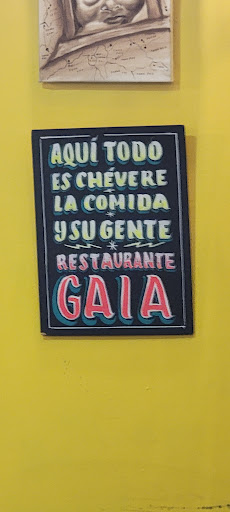 AQUÍ TODO
ES CHÉVERE
LA COMIDA
Y SU GENTE
RESTAURANTE
GAIA